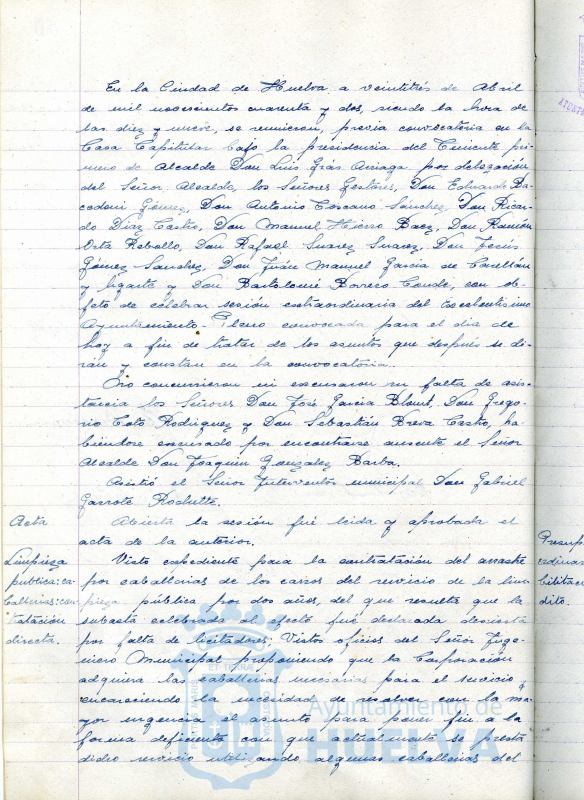 En la Ciudad de Huelva, a veintitrés de Abril
de mil novecientos cuarenta y dos, siendo la hora de
las diez y nueve, se reunieron, previa convocatoria en la
Casa Capitular bajo la presidencia del Teniente pri-
mero de Alcalde Don Luis Grás Arriaga por delegación
del Señor Alcalde, los Señores Gestores, Don Eduardo
Gómez, Don Antonio Toscano Sánchez, Don Ricar-
do Díaz Castro, Don Manuel Hierro Baez, Don Ramón
Orta Rebollo, Don Rafael Suarez Suarez, Don Jesús
Gómez Sanchez, Don Juán Manuel García de
y Ugarte y Don Bartolomé Borrero Conde, con ob-
jeto de celebrar sesión extraordinaria del Excelentísimo
Ayuntamiento-Pleno convocada para el dia de
hoy a fin de tratar de los asuntos que después se di-
rán y constan en la convocatoria.
No concurrieron ni excusaron su falta de asis-
tencia los Señores Don José García Don Grego-
rio Rodriguez y Don Sebastián Castro, ha-
biéndose excusado por encontrarse ausente el Señor
Alcalde Don Joaquin Gonzalez Barba.
Asistió el Señor Interventor municipal Don Gabriel
Garrote
Acta
Abierta la sesión fué leida y aprobada el
acta de la anterior.
Limpieza
publica: ca-
ballerias: con-
tratación
directa.
Visto expediente para la contratación del arrastre
por caballerias de los carros del servicio de la lim-
pieza pública por dos años, del que resulta que la
subasta celebrada al efecto fué declarada desierta
por falta de licitadores; Vistos oficios del Señor Inge-
niero Municipal proponiendo que la Corporación
adquiera las caballerias necesarias para el servicio y
encareciendo la necesidad de resolver con la ma-
yor urgencia el asunto para poner fin a la
forma deficiente con que actualmente se presta
dicho servicio utilizando algunas caballerias del
Presup
dito.
Ayuntamiento de
HUELVA